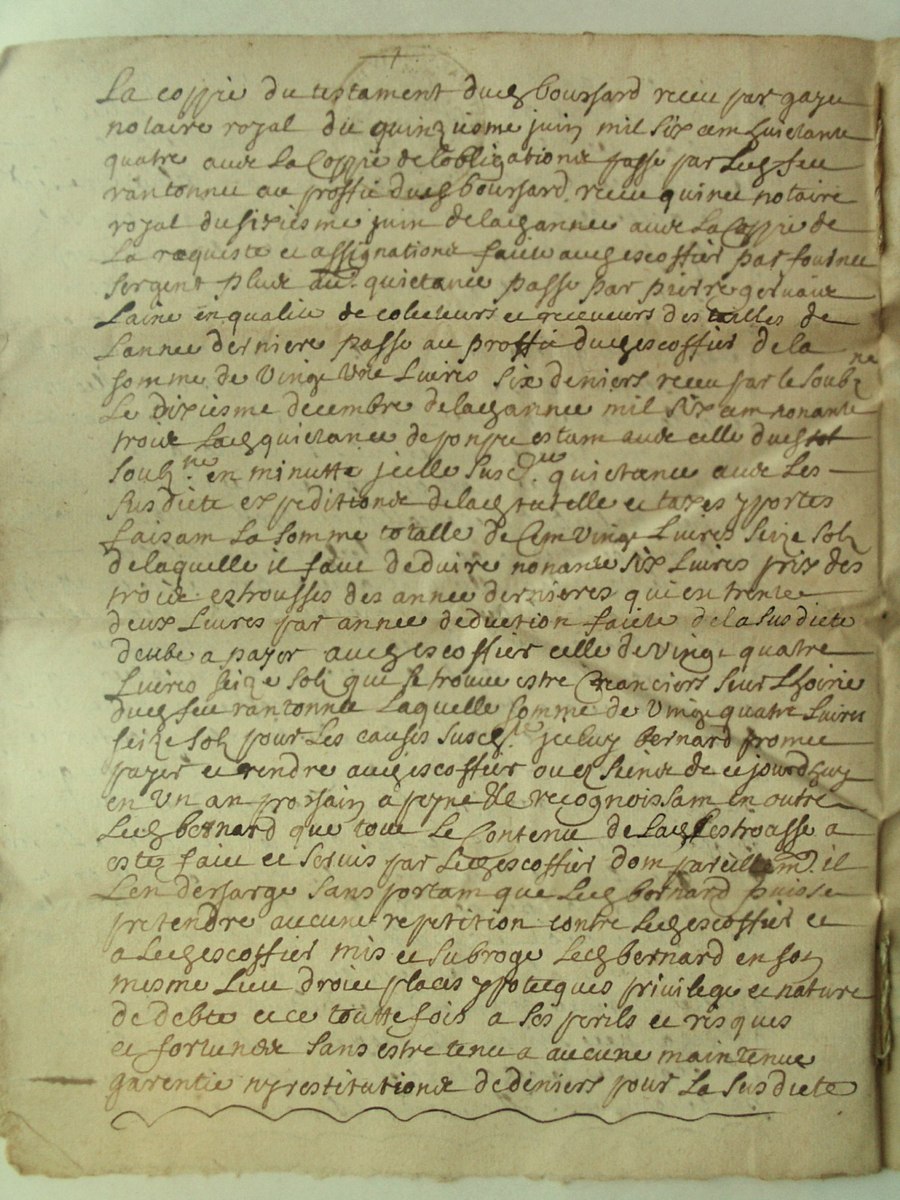 La coppie du testament dud boussard receu par gayu
notaire royal du quinziesme juin mil six cem huictante
quatre avec La Coppie de l'obligationd passe par Led feu
rantonnet au proffit dud boussard receu quinet notaire
royal du sixiesme juin de lad annee avec La Coppie de
La requeste et assignationd faite aud escoffier par fournet
sergent plus au.e quictance passe par pierre gervaix
Laine en qualite de colecteurs et receveurs des tailles de
L'annee derniere passe au proffit dud escoffier de la
somme de vingt une Livres six deniers receu par le soub.ne
Le dixiesme decembre de lad annee mil six cem nonante
trois Lad quictance de estam avec celle dud
soub.ne en minutte jcelle susd.e quictance avec Les
susdicte expeditions de lad tutelle et taxes y portes
faisam La somme totalle de Cem vingt Livres seize solz
de laquelle il faut deduire nonante six Livres prix des
trois estrousses des annee dernieres qui est trente
deux Livres par annee deduction faicte de la susdicte
deube a payer aud escoffier celle de vingt quatre
Livres seize solz que se trouve estre creanciers sur L'hoirie
dud feu rantonnet Laquelle somme de vingt quatre Livres
seize solz pour Les causes susd.te jceluy bernard promet
payer et rendre aud escoffier ou es siens de ce jourdhuy
en un an prochain a peyne &c recognoissam en outre
Led bernard que tout Le Contenu de Lad estrousse a
este faict et servis par Led escoffier dom pareillem.t il
L'en descharge sans portam que Led bernard puisse
pretendre aucune repetition contre Led escoffier et
a Led escoffier mis et subroge Led bernard en son
mesme Lieu droit places ypotecques privilege et nature
de debte et ce touttefois a ses perils et risques
et fortunes sans estre tenu a aucune maintenue
garentie ny restitutions de deniers pour La susdicte